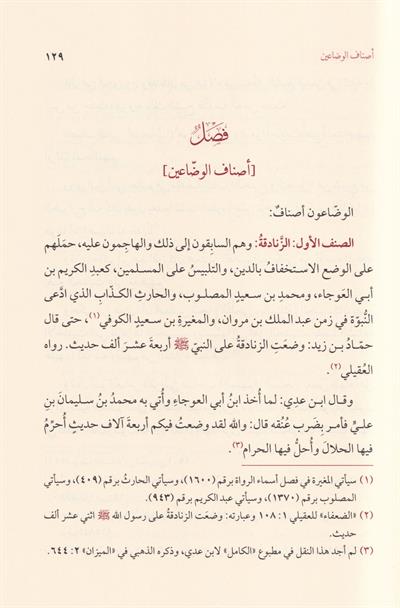 أصناف الوضاعين ١٢٩
فَصْلٌ
[أصناف الوضّاعين]
الوضّاعون أصنافٌ:
الصنف الأول: الزَّنادقةُ: وهم السابِقون إلى ذلك والهاجِمون عليه، حمَلَهم
على الوضع الاستخفافُ بالدين، والتلبيسُ على المسلمين، كعبدِ الكريم بن
أبي العَوجاء، ومحمدِ بن سعيدٍ المصلوب، والحارثِ الكذّابِ الذي ادَّعى
النُّبوّة في زمن عبد الملك بن مروان، والمغيرةِ بن سعيدٍ الكوفي(١)، حتى قال
حمّادُ بن زيد: وضعَتِ الزنادقةُ على النبيّ ﷺ أربعةَ عشرَ ألف حديث. رواه
العُقيلي(٢).
وقال ابن عدِي: لما أُخذ ابنُ أبي العوجاءِ وأُتي به محمدُ بنُ سليمانَ بنِ
عليٍّ فأمر بضَرب عُنُقه قال: والله لقد وضعتُ فيكم أربعةَ آلاف حديثٍ أُحرِّمُ
فيها الحلالَ وأُحلُّ فيها الحرام(٣).
(١) سيأتي المغيرة في فصل أسماء الرواة برقم (١٦٠٠)، وسيأتي الحارثُ برقم (٤٠٩)، وسيأتي
المصلوب برقم (١٣٧٠)، وسيأتي عبد الكريم برقم (٩٤٣).
(٢) «الضعفاء» للعقيلي ١: ١٠٨ وعبارته: وضعَت الزنادقةُ على رسول الله ﷺ اثني عشر ألف
حديث.
(٣) لم أجد هذا النقل في مطبوع «الكامل» لابن عدي، وذكره الذهبي في «الميزان» ٢: ٦٤٤.